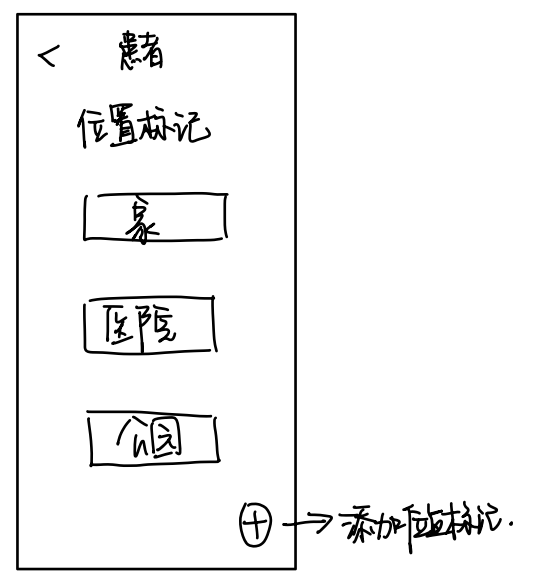 < 患者
位置标记
家
医院
公园
+ → 添加位置标记.